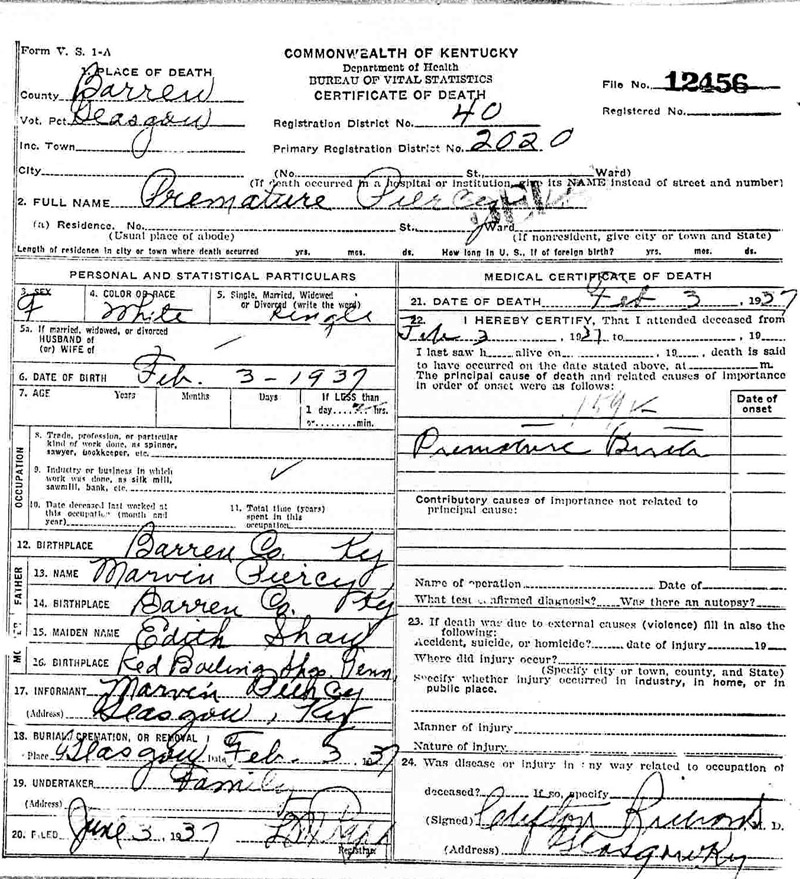 Form V. S. 1-A
COMMONWEALTH OF KENTUCKY
Department of Health
BUREAU OF VITAL STATISTICS
CERTIFICATE OF DEATH
File No. 12456
Registered No.
1. PLACE OF DEATH
County Barren
Vot. Pct. Glasgow
Inc. Town
City
Registration District No. 40
Primary Registration District No. 2020
(No. St. Ward)
(If death occurred in a hospital or institution, give its NAME instead of street and number)
2. FULL NAME Premature Piercy
(a) Residence. No. St., Ward
(Usual place of abode) (If nonresident, give city or town and State)
Length of residence in city or town where death occurred yrs. mos. ds. How long in U. S., if of foreign birth? yrs. mos. ds.
PERSONAL AND STATISTICAL PARTICULARS
3. SEX F
4. COLOR OR RACE White
5. Single, Married, Widowed or Divorced (write the word) Single
5a. If married, widowed, or divorced
HUSBAND of
(or) WIFE of
6. DATE OF BIRTH Feb. 3 - 1937
7. AGE Years Months Days If LESS than
1 day hrs.
or min.
OCCUPATION
8. Trade, profession, or particular
kind of work done, as spinner,
sawyer, bookkeeper, etc.
9. Industry or business in which
work was done, as silk mill,
sawmill, bank, etc.
10. Date deceased last worked at
this occupation (month and
year)
11. Total time (years)
spent in this
occupation
12. BIRTHPLACE Barren Co. Ky
FATHER
13. NAME Marvin Piercy
14. BIRTHPLACE Barren Co. Ky
15. MAIDEN NAME Edith Shaw
16. BIRTHPLACE Red Boiling Spgs Tenn
17. INFORMANT Marvin Piercy
(Address) Glasgow, Ky
18. BURIAL, CREMATION, OR REMOVAL
Place Glasgow Date Feb. 3 1937
19. UNDERTAKER Family
(Address)
20. FILED June 3, 1937
Registrar
MEDICAL CERTIFICATE OF DEATH
21. DATE OF DEATH Feb 3, 1937
22. I HEREBY CERTIFY, That I attended deceased from
Feb 3, 1937 to , 19
I last saw h alive on , 19 , death is said
to have occurred on the date stated above, at m.
The principal cause of death and related causes of importance
in order of onset were as follows:
Date of
onset
159
Premature Birth
Contributory causes of importance not related to
principal cause:
Name of operation Date of
What test confirmed diagnosis? Was there an autopsy?
23. If death was due to external causes (violence) fill in also the
following:
Accident, suicide, or homicide? date of injury 19
Where did injury occur?
(Specify city or town, county, and State)
Specify whether injury occurred in industry, in home, or in
public place.
Manner of injury
Nature of injury
24. Was disease or injury in any way related to occupation of
deceased? If so, specify
(Signed) Clifton M. D.
(Address) Glasgow Ky